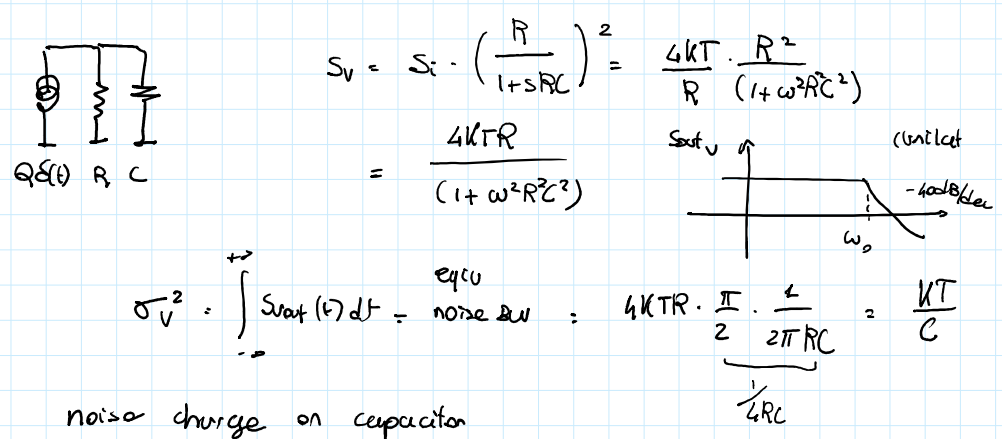 S_v = S_i · ( R / (1+sRC) )² = 4KT/R · R² / (1+ω²R²C²)
Qδ(t) R C
= 4KTR / (1+ω²R²C²)
Sout_v (unilat
-40dB/dec
ω₀
σ_V² = ∫_{-∞}^{+∞} Svout (t) dt = equ noise BW = 4KTR · π/2 · 1/(2πRC) = KT/C
1/4RC
noise charge on capacitor